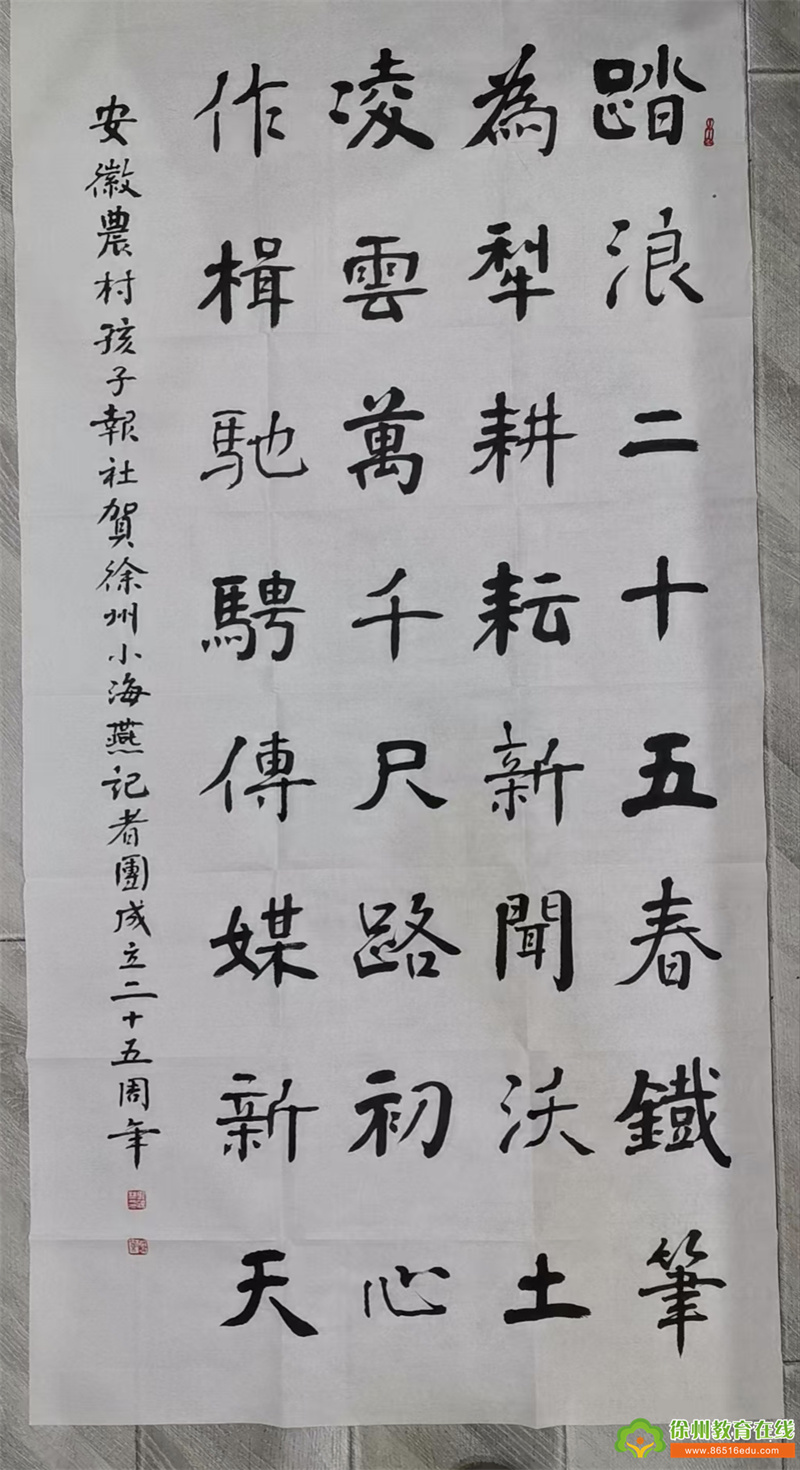 踏浪二十五春鐵筆
為犁耕耘新聞沃土
凌雲萬千尺路初心
作楫馳騁傳媒新天
安徽農村孩子報社賀徐州小海燕記者團成立二十五周年
徐州教育在线
www.86516edu.com